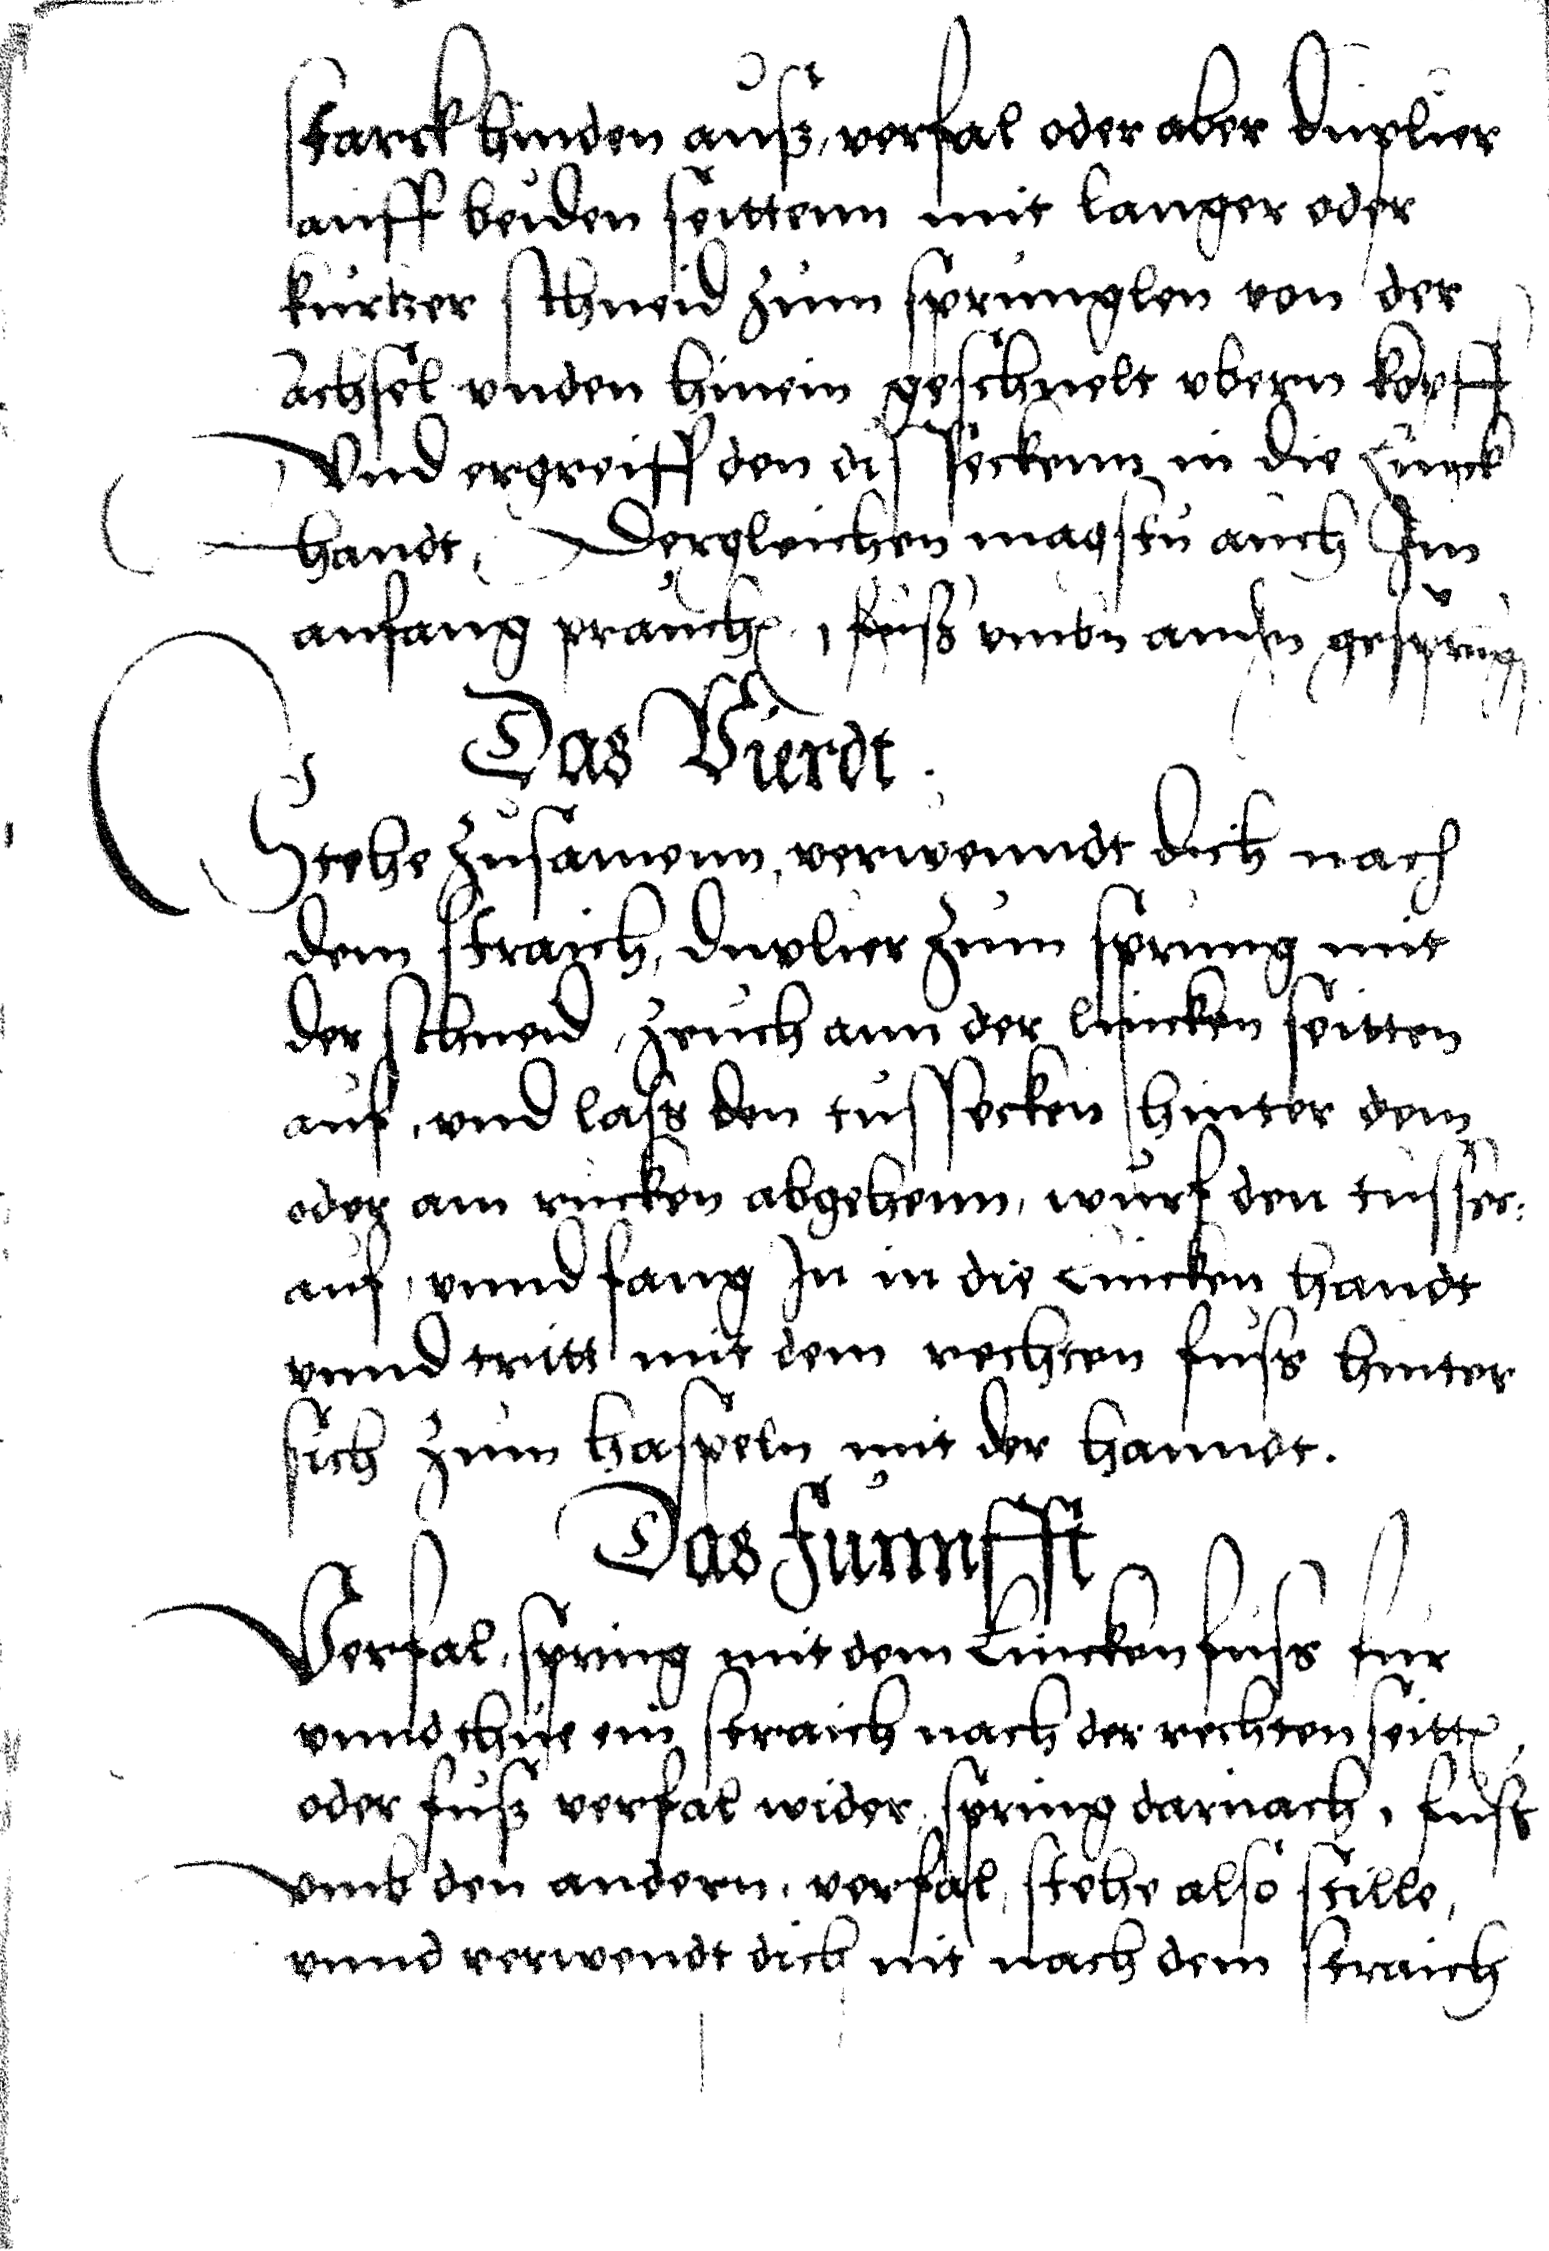 starck hinden auß, verfal oder aber duplier
auff beiden seittenn mit langer oder
kurtzer schneid zum sprunglen von der
Achsel unden hinein geschnelt ubern kopff
Und ergreiff den disseckenn in die Linck
handt, Dergleichen magstu auch Im
anfang prauch, fuß umbn andn gesprung
Das Vierdt.
Stehe zusamenn, verwenndt dich nach
dem straich, duplier zum sprung mit
der schneid, zeuch ann der lincken seitten
auf, und lass den tussecken hinter dem
oder am rucken abgehenn, wurf den tusse:
auf, unnd fang In in die Lincken handt
unnd tritt mit dem rechten fuss hinter
sich zum haspeln mit der hanndt.
Das funnfft
Verfal, spring mit dem Lincken fuss fur
unnd thue ein straich nach der rechten seitt,
oder fuß verfal wider, spring darnach, fuß
umb den andern, verfal, stehe also stille,
unnd verwendt dich nit nach dem straich